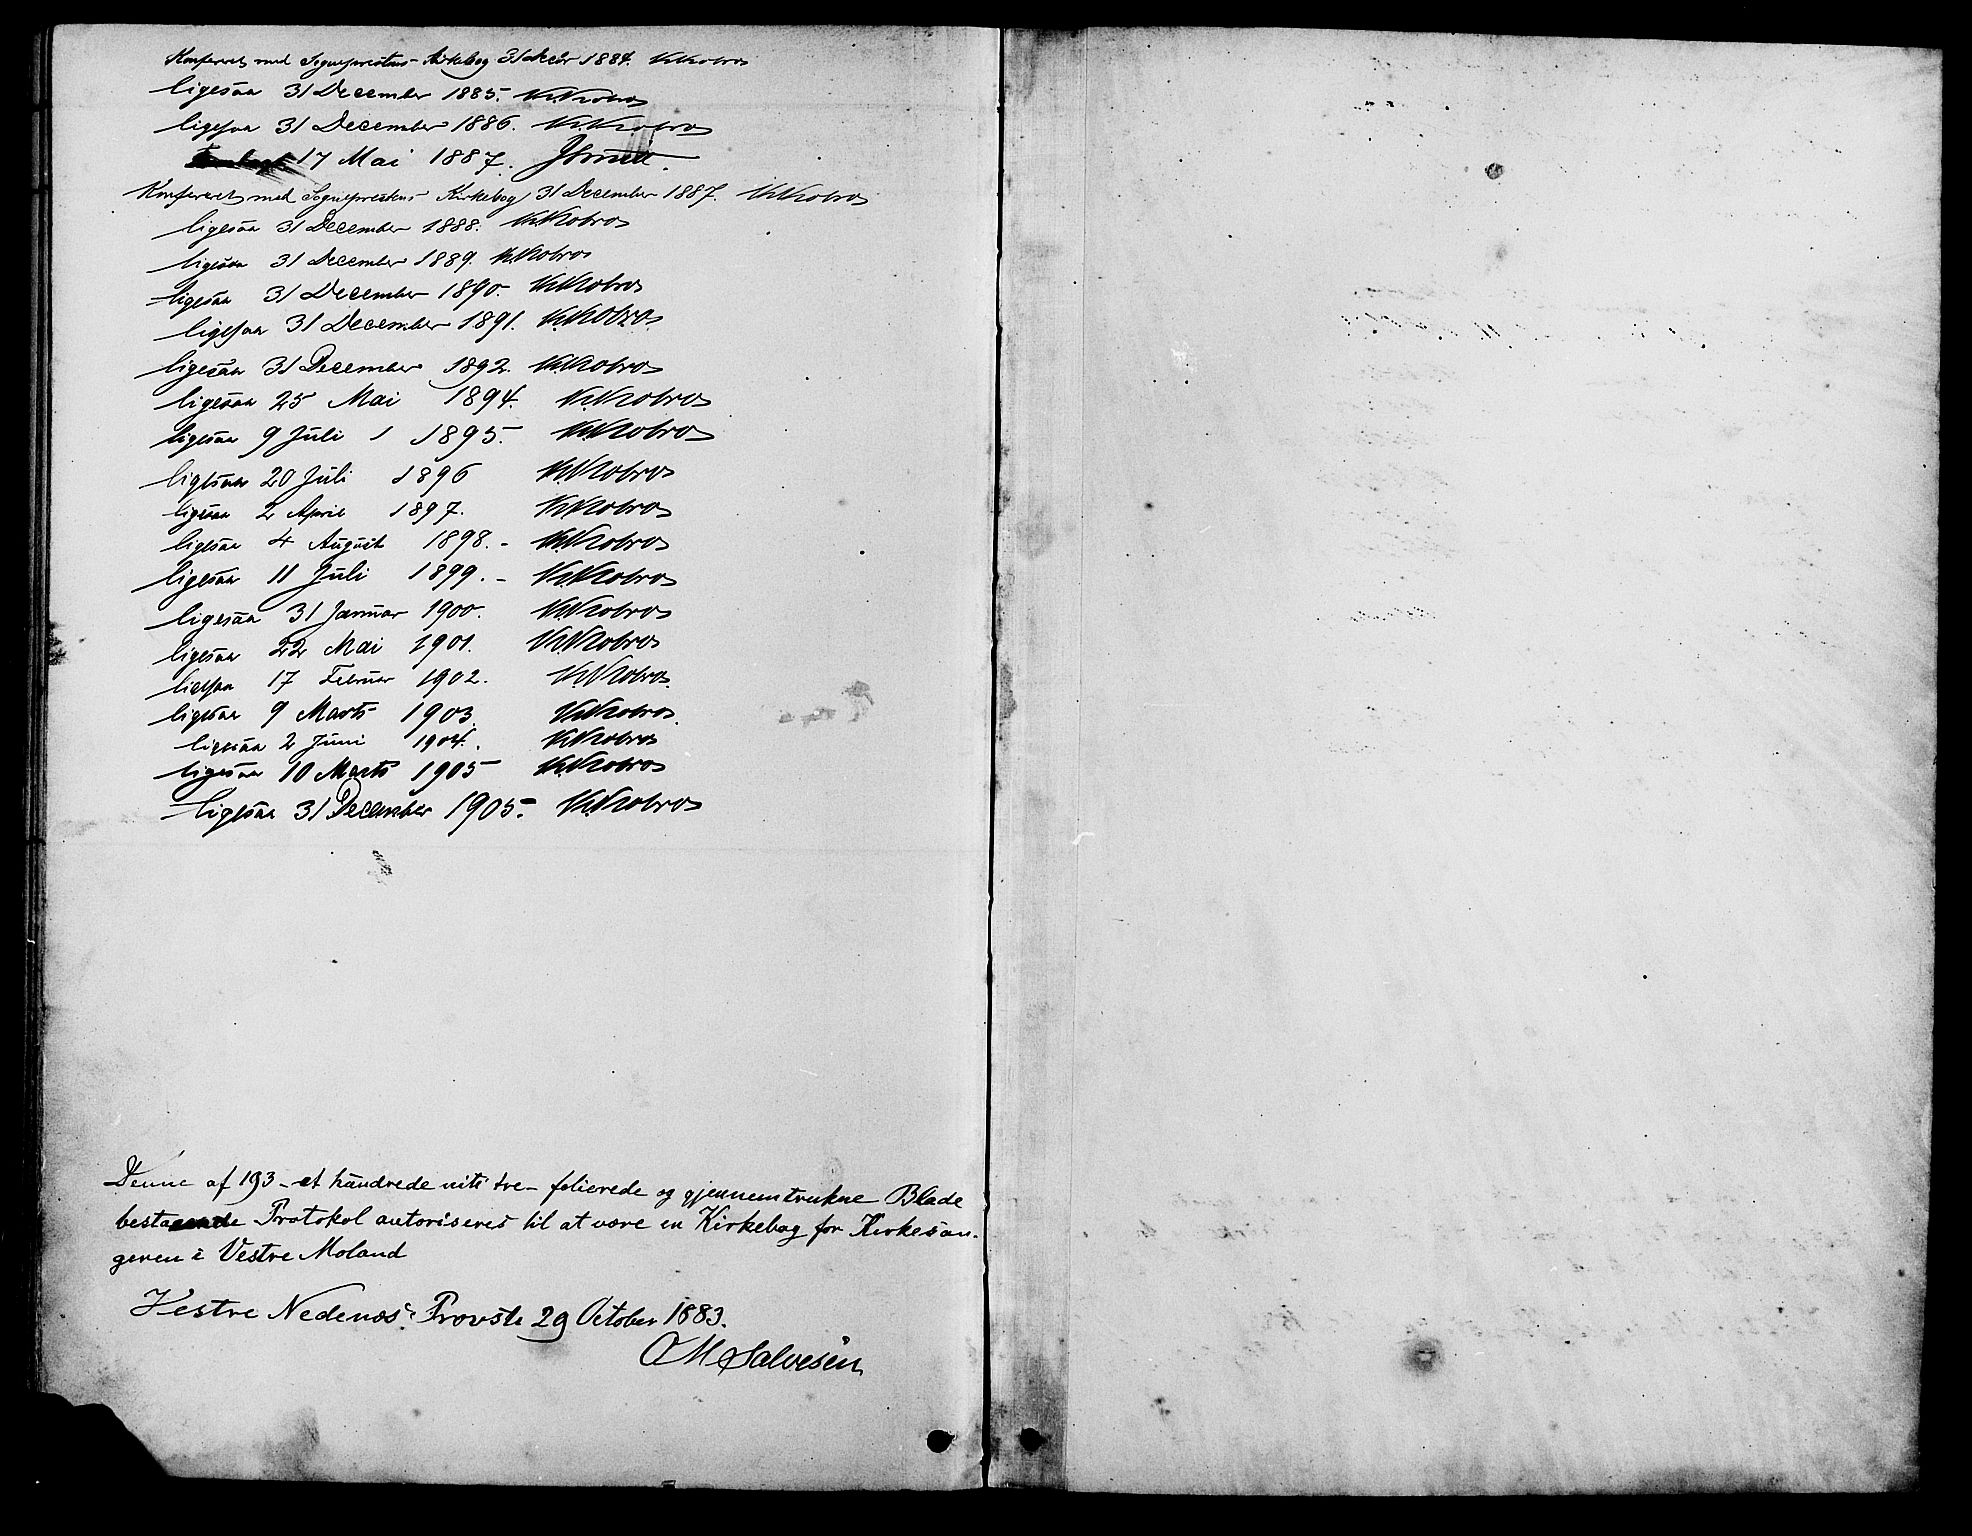 Konfereret med Sognepræstens Kirkebog 31 Decbr 1884. K.Kobro
ligesaa 31 December 1885. K.Kobro
ligesaa 31 December 1886. K.Kobro
17 Mai 1887.
Konfereret med Sognepræstens Kirkebog 31 December 1887. K.Kobro
ligesaa 31 December 1888. K.Kobro
ligesaa 31 December 1889. K.Kobro
ligesaa 31 December 1890. K.Kobro
ligesaa 31 December 1891. K.Kobro
ligesaa 31 December 1892. K.Kobro
ligesaa 25 Mai 1894. K.Kobro
ligesaa 9 Juli 1895. K.Kobro
ligesaa 20 Juli 1896 K.Kobro
ligesaa 2 April 1897. K.Kobro
ligesaa 4 August 1898. - K.Kobro
ligesaa 11 Juli 1899. - K.Kobro
ligesaa 31 Januar 1900. K.Kobro
ligesaa 22 Mai 1901. K.Kobro
ligesaa 17 Februar 1902. K.Kobro.
ligesaa 9 Marts 1903. K.Kobro.
ligesaa 2 Juni 1904. K.Kobro
ligesaa 10 Marts 1905 K.Kobro
ligesaa 31 December 1905. K.Kobro
Denne af 193 - et hundrede niti tre - folierede og gjennemtrukne Blade
bestaaende Protokol autoriseres til at være en Kirkebog for Kirkesan-
geren i Vestre Moland
Vestre Nedenæs Provsti 29 October 1883.
O M Salvesen